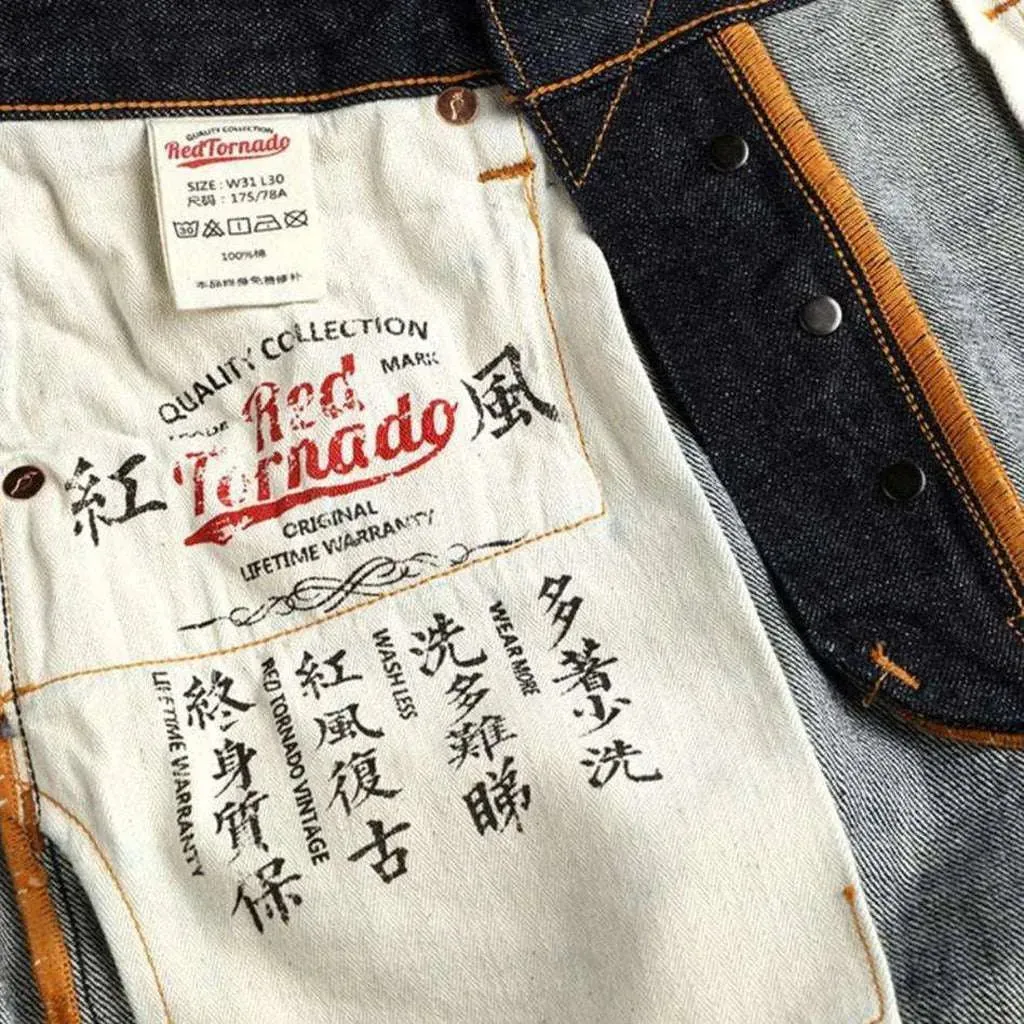 QUALITY COLLECTION
RedTornado
SIZE : W31 L30
尺码 : 175/78A
30
100%棉
本品终身免费修补
QUALITY COLLECTION
TRADE MARK
Red
Tornado
紅 風
ORIGINAL
LIFETIME WARRANTY
多著少洗
WEAR MORE
洗多難睇
WASH LESS
紅風復古
RED TORNADO VINTAGE
終身質保
LIFETIME WARRANTY